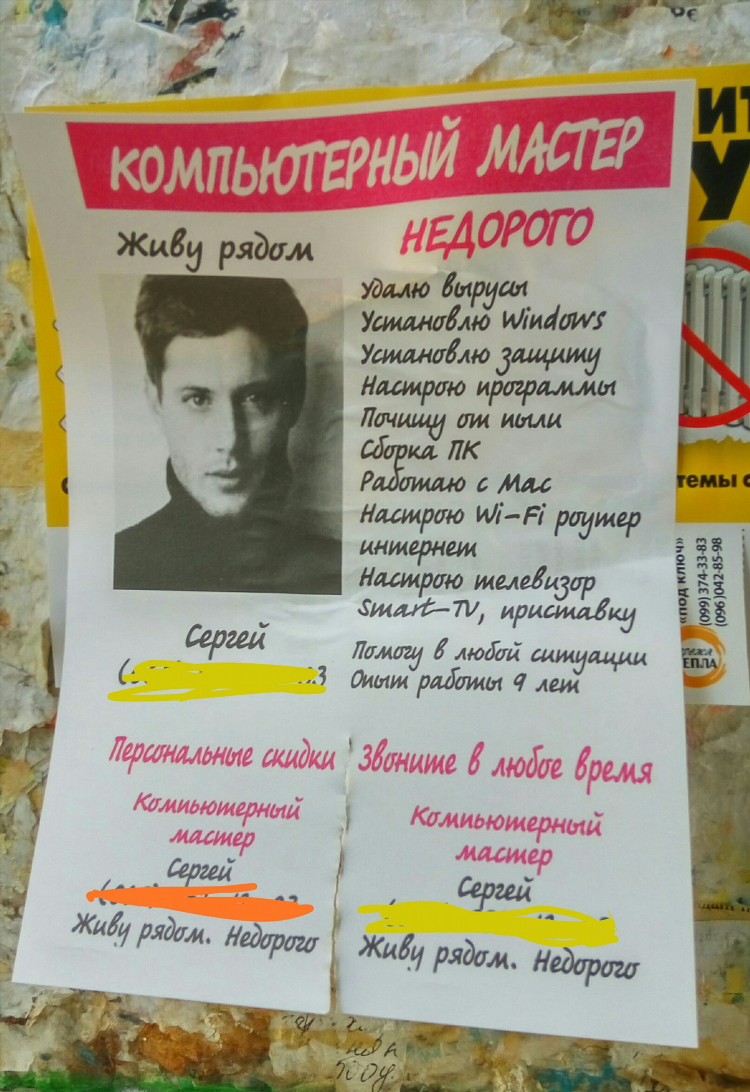 КОМПЬЮТЕРНЫЙ МАСТЕР
Живу рядом
НЕДОРОГО
Удалю вырусы
Установлю Windows
Установлю защиту
Настрою программы
Почищу от пыли
Сборка ПК
Работаю с Mac
Настрою Wi-Fi роутер
интернет
Настрою телевизор
Smart-TV, приставку
Помогу в любой ситуации
Опыт работы 9 лет
Сергей
Персональные скидки
Компьютерный
мастер
Сергей
Живу рядом. Недорого
Звоните в любое время
Компьютерный
мастер
Сергей
Живу рядом. Недорого
ИТ
У
темы с
«под ключ»
(099) 374-33-83
(096) 042-85-98
ЕПЛА